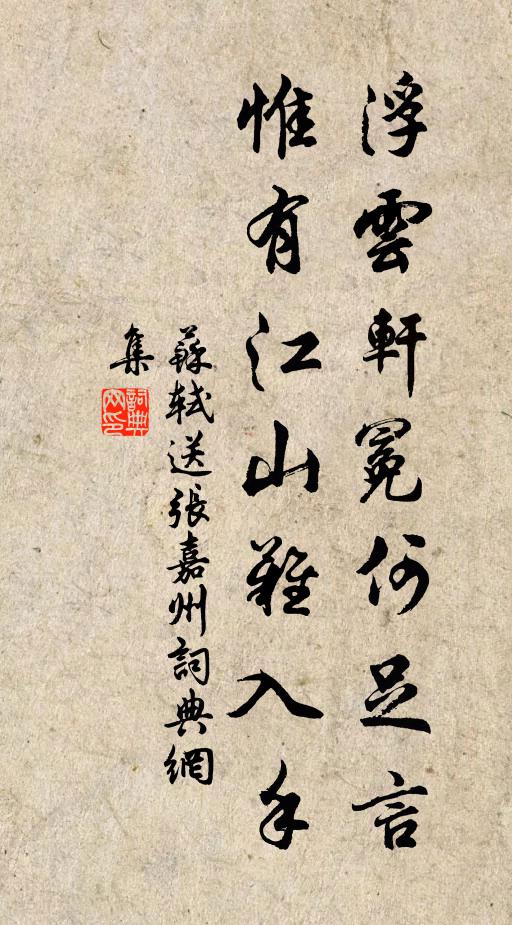 浮雲軒冕何足言
惟有江山難入手
蘇軾送張嘉州詞典網
集
詞典網印